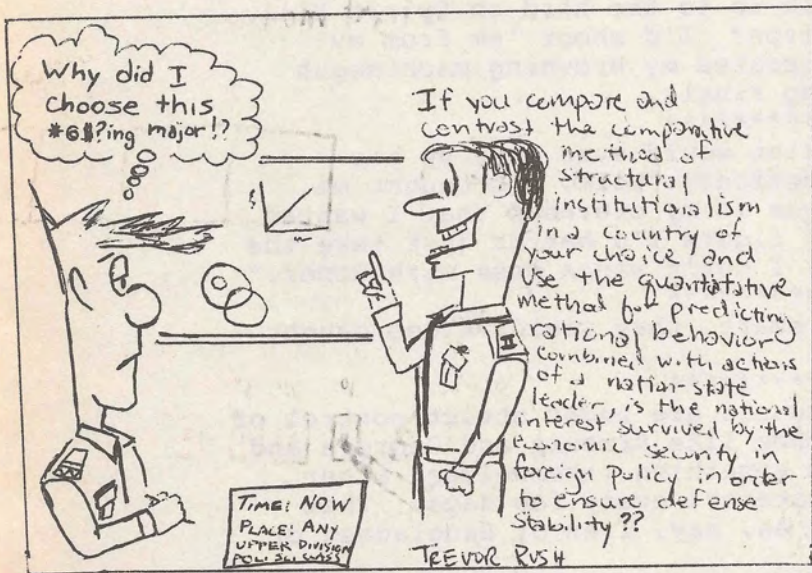 Why did I
choose this
*6$?ing major!?
If you compare and
contrast the comparative
method of
structural
institutionalism
in a country of
your choice and
use the quantatative
method for predicting
rational behavior
combined with actions
of a nation-state
leader, is the national
interest survived by the
economic security in
foreign policy in order
to ensure defense
stability??
TIME: NOW
PLACE: ANY
UPPER DIVISION
POLI SCI CLASS
TREVOR RUSH